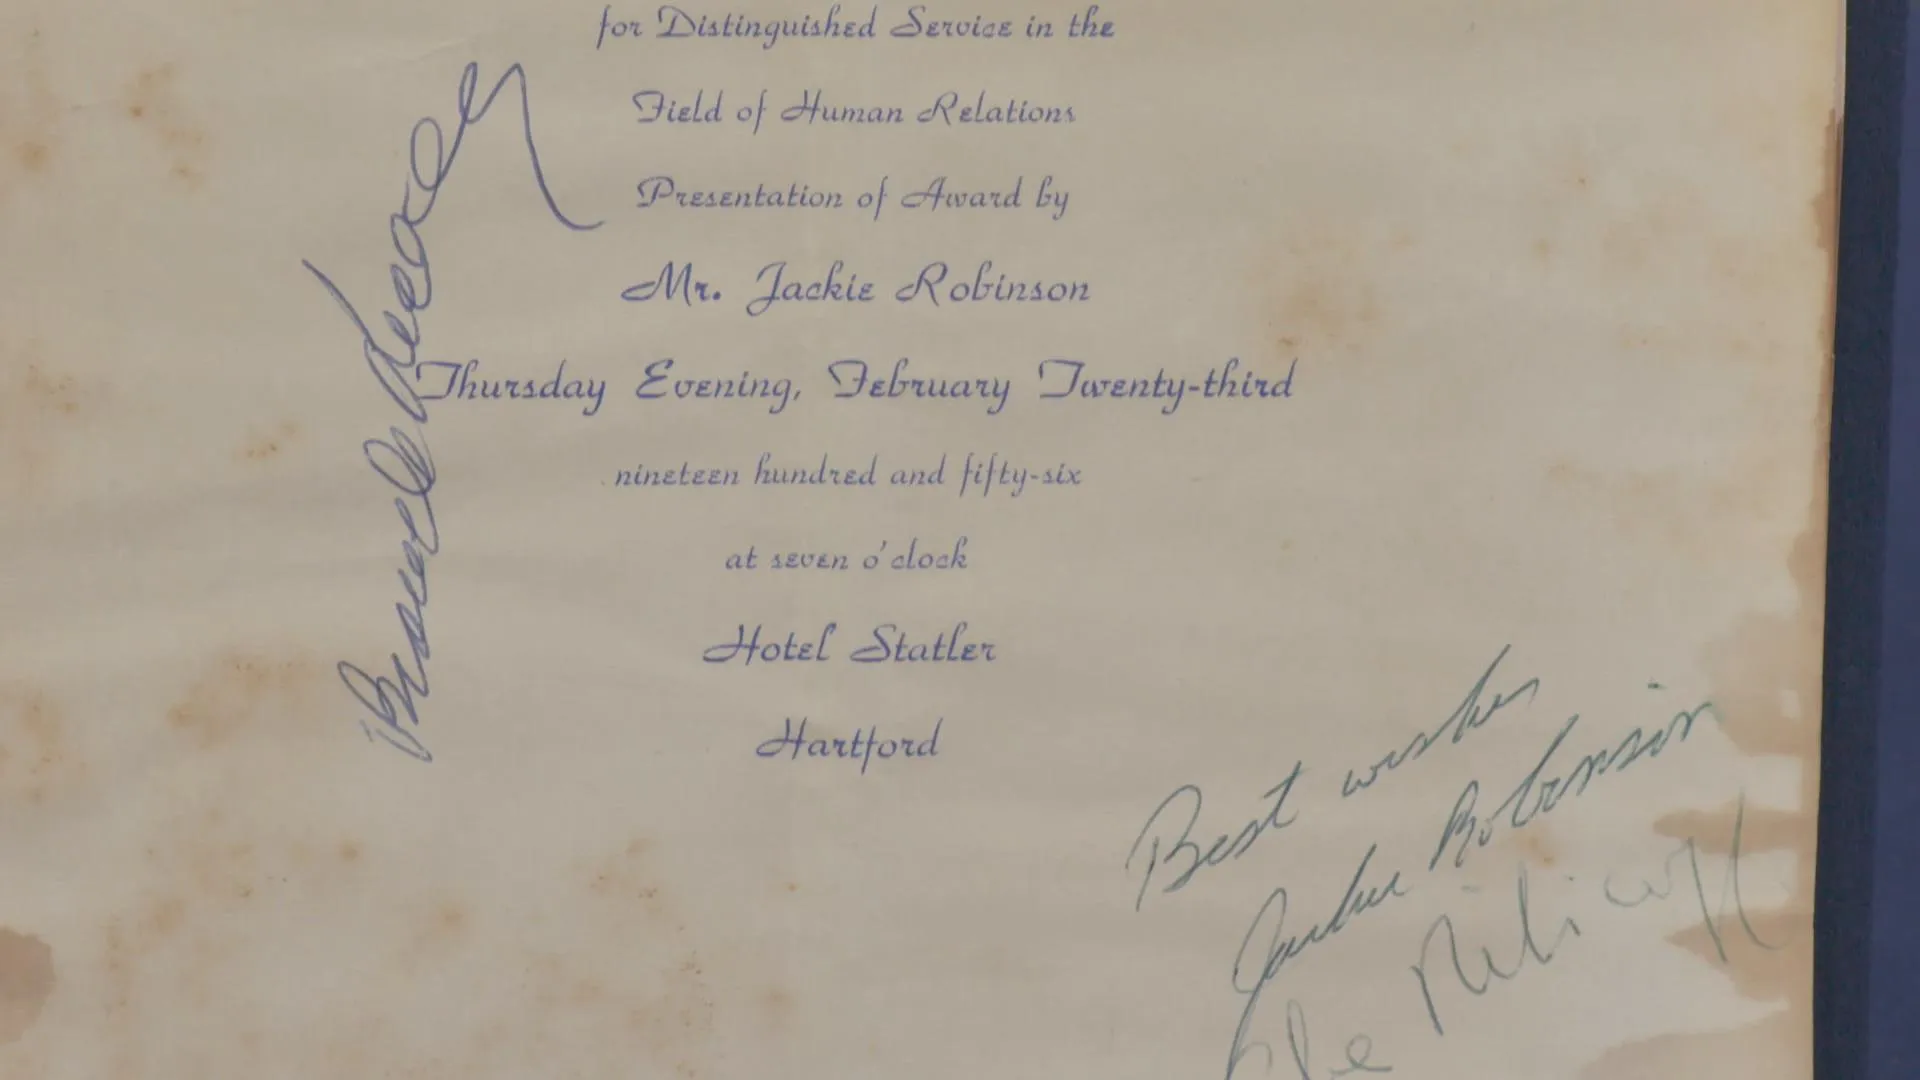 for Distinguished Service in the
Field of Human Relations
Presentation of Award by
Mr. Jackie Robinson
Thursday Evening, February Twenty-third
nineteen hundred and fifty-six
at seven o'clock
Hotel Statler
Hartford
Best wishes
Jackie Robinson
Abe Ribicoff